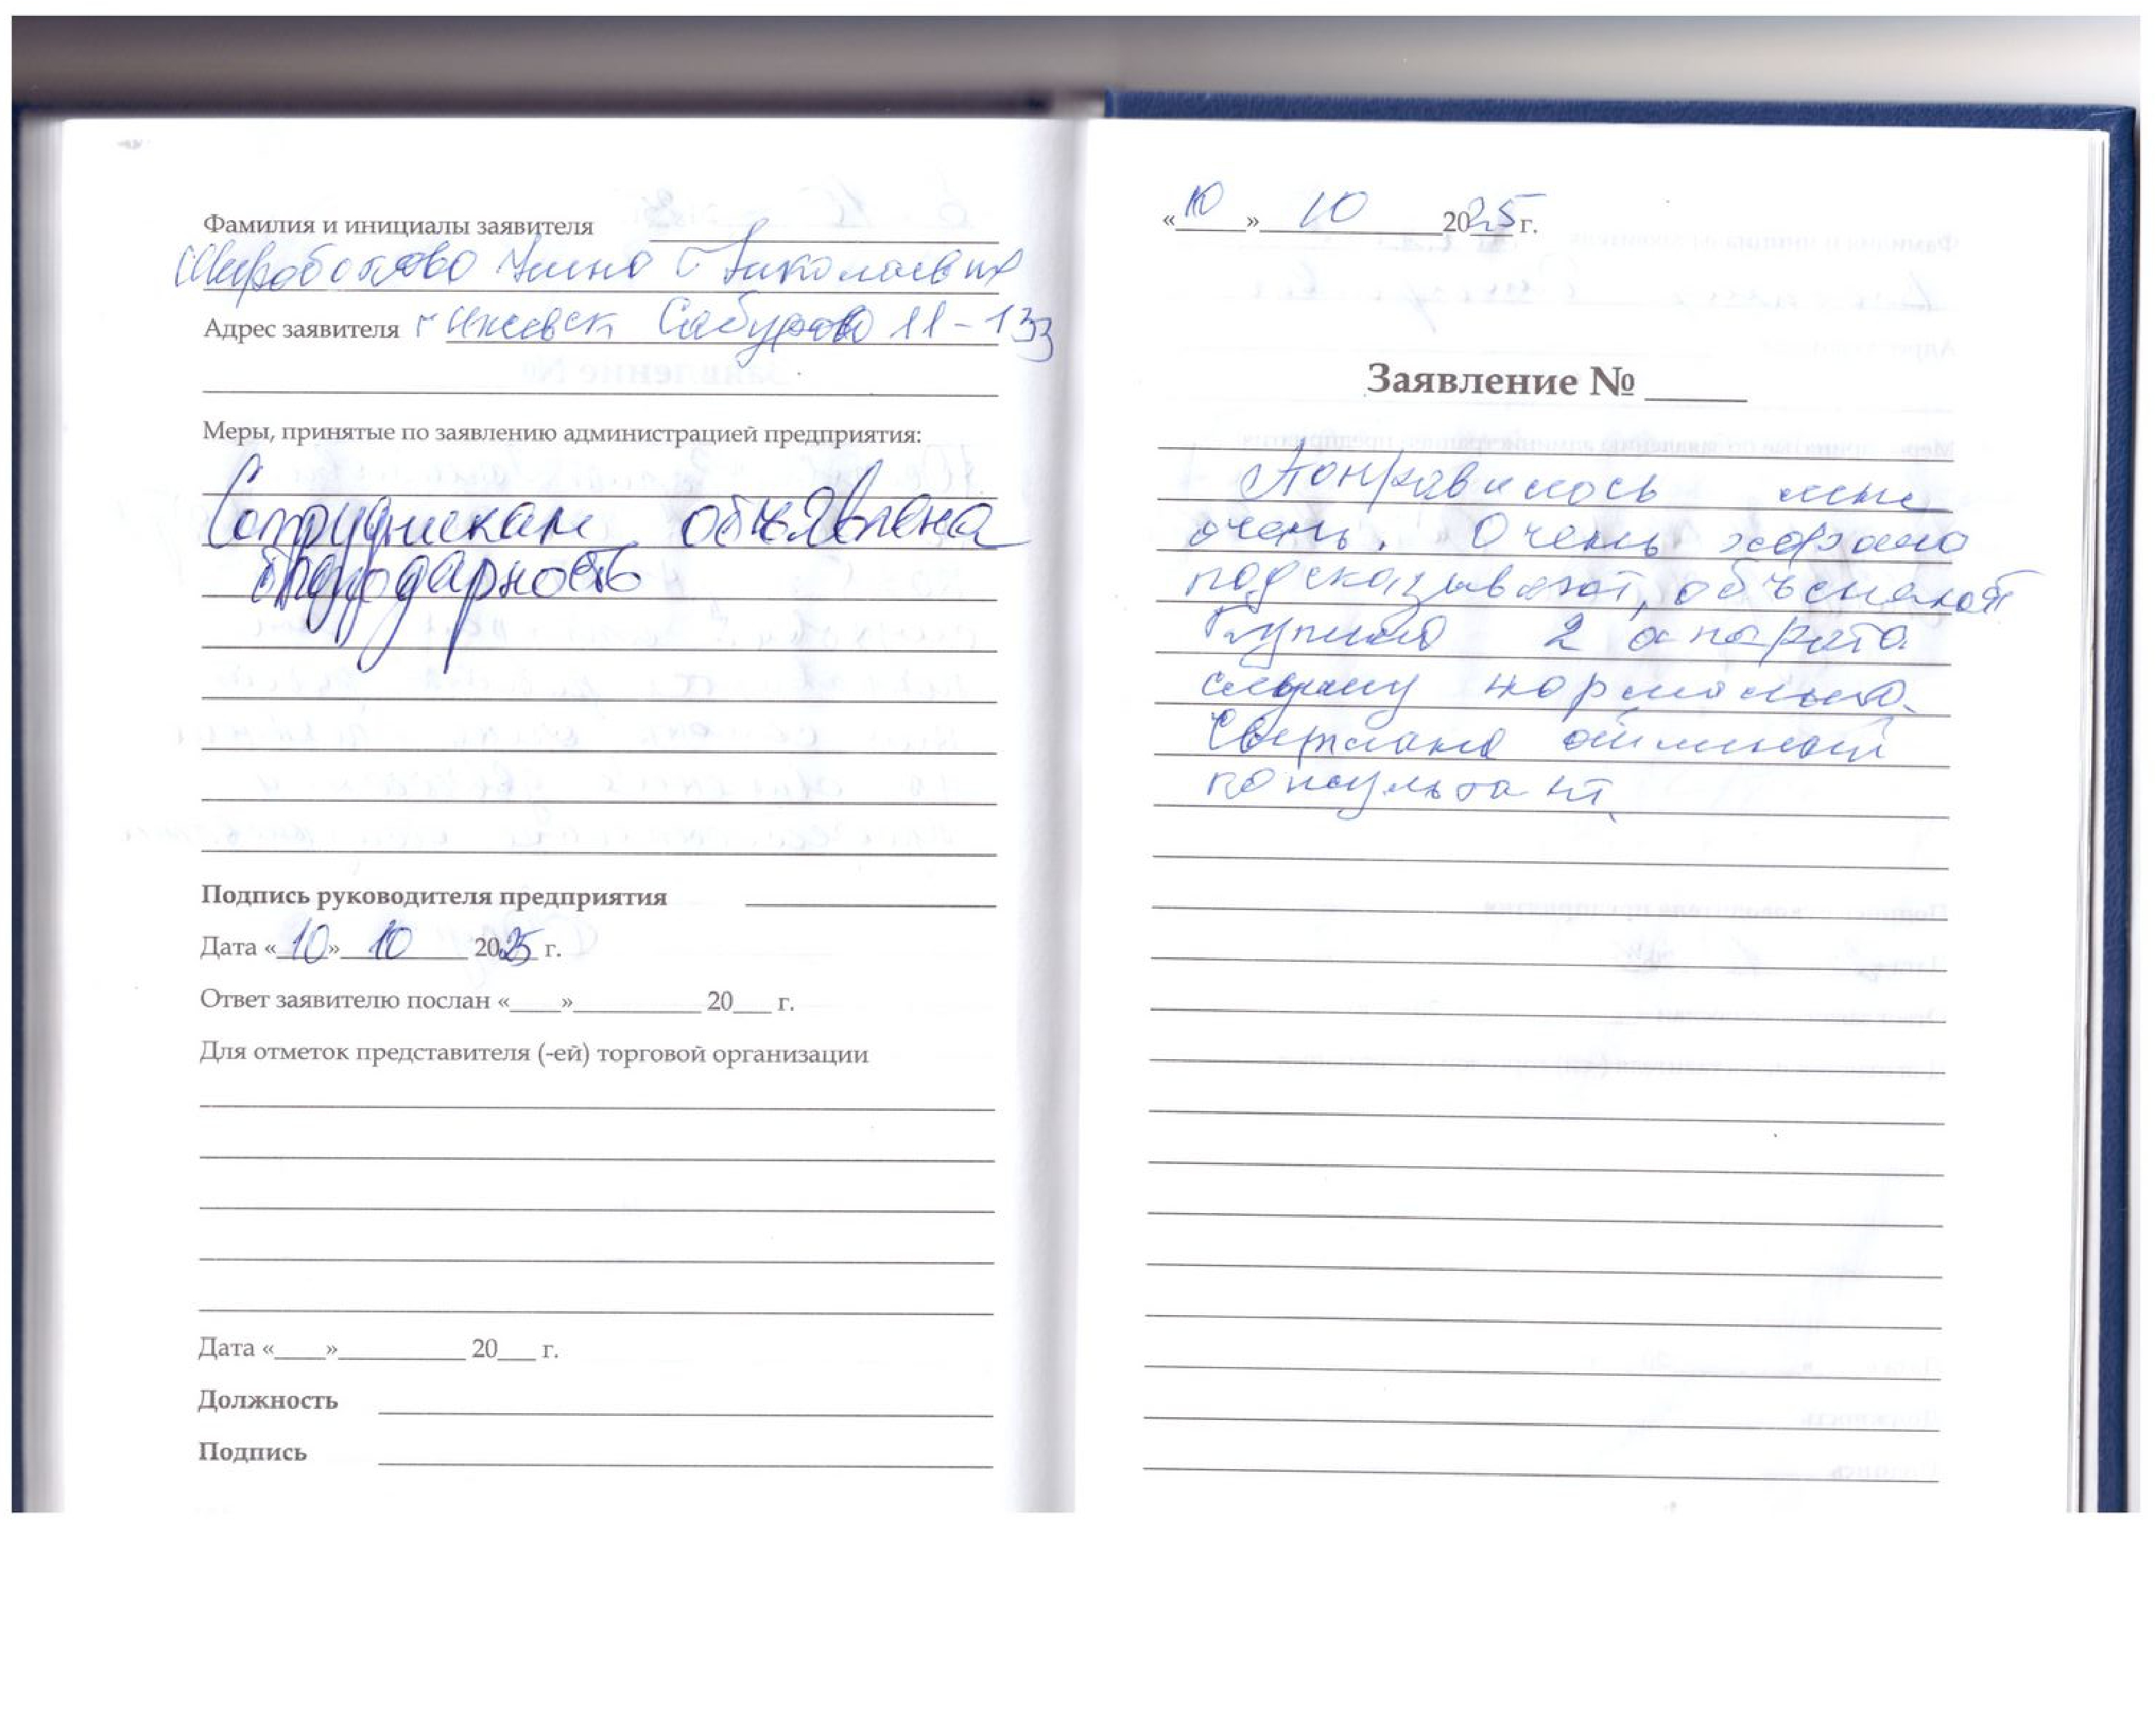 Фамилия и инициалы заявителя
Широбокова Нина Николаевна
Адрес заявителя г Ижевск Сабурова 11-133
Меры, принятые по заявлению администрацией предприятия:
Сотрудникам объявлена
благодарность
Подпись руководителя предприятия
Дата «10» 10 2025 г.
Ответ заявителю послан «___»__________ 20___ г.
Для отметок представителя (-ей) торговой организации
Дата «____»__________ 20___ г.
Должность
Подпись
«10» 10 2025 г.
Заявление № _____
Понравилось мне
очень. Очень хорошо
подсказывают, объясняют
Купила 2 апарата
слышу нормально.
Светлана отличный
консультант.